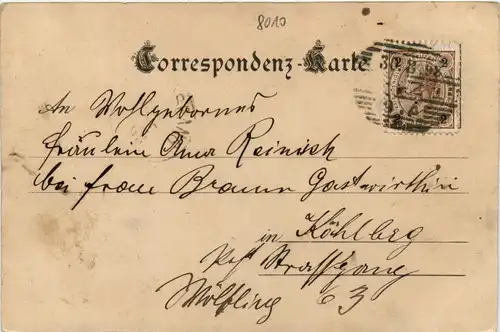 8010
Correspondenz-Karte
2 2
2 2
An Wohlgebornes
fräulein Anna Reinisch
bei frau Braun Gastwirthin
in Köhlberg
Post Strassgang
Wölfling 63